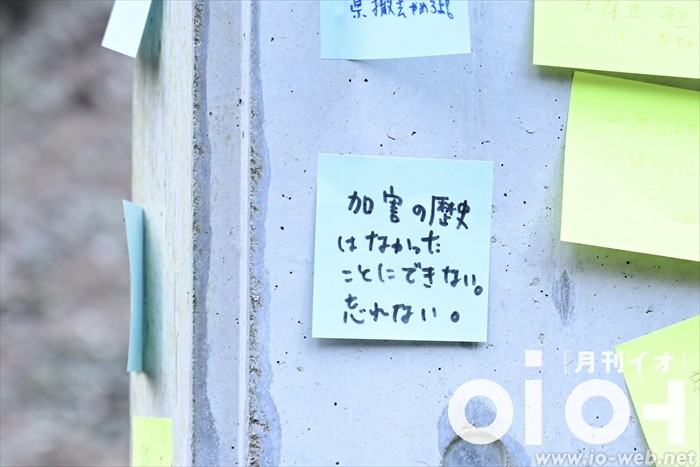 県撤去やめろよ。
加害の歴史
はなかった
ことにできない。
忘れない。
[月刊イオ]
이어
www.io-web.net